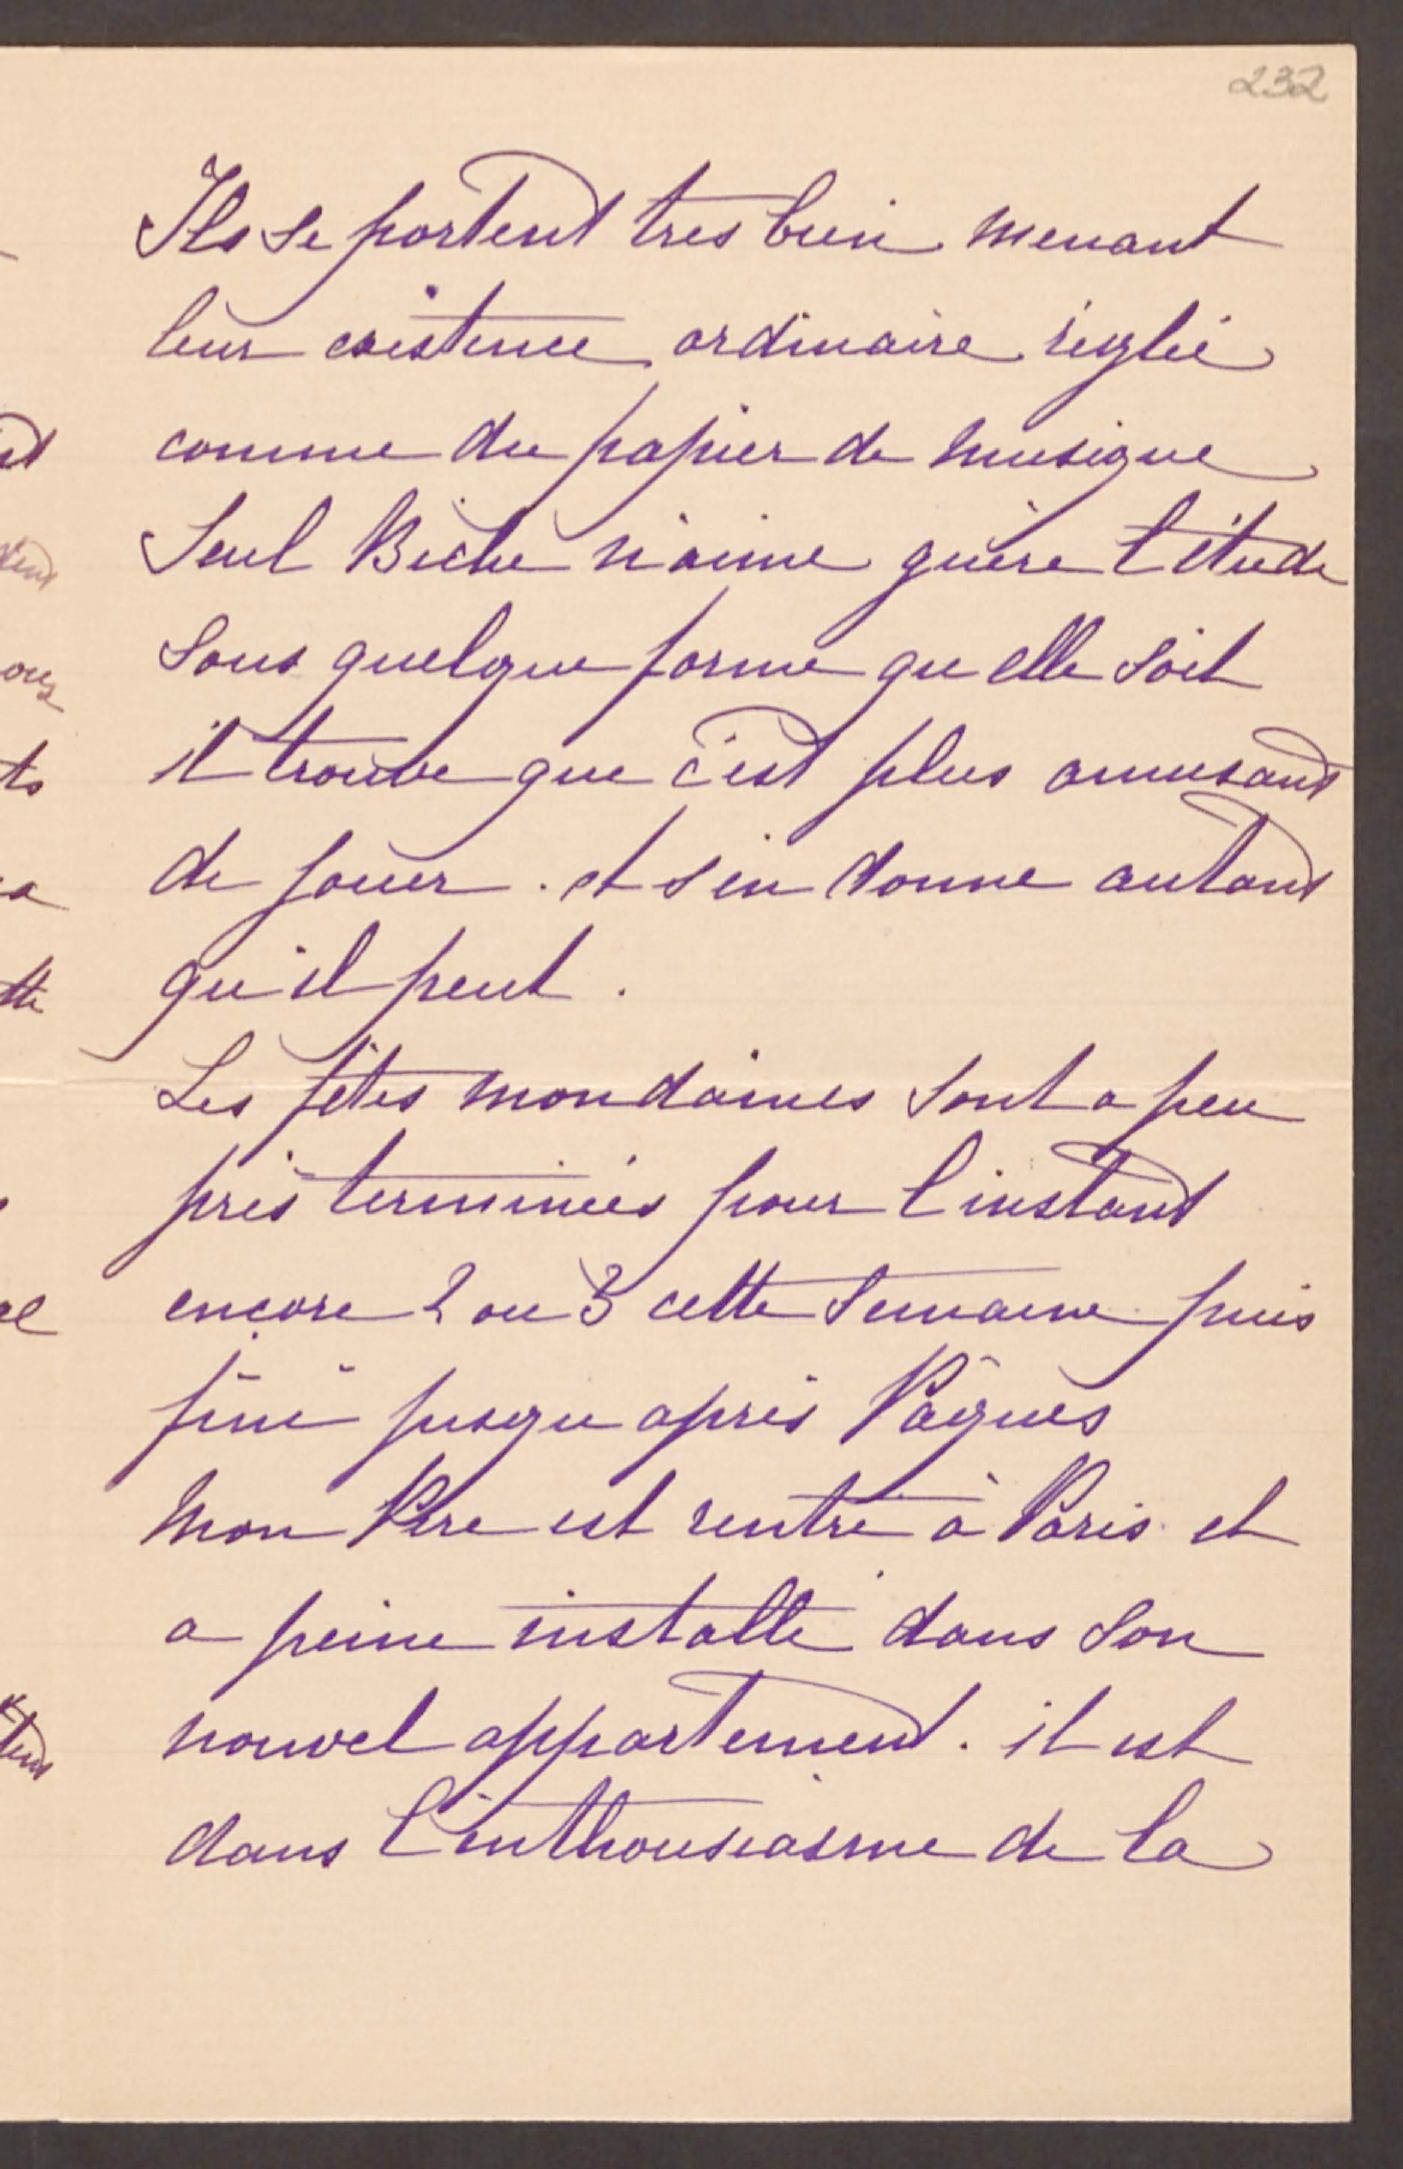 232
Ils se portent tres bien menant
leur existence ordinaire réglée
comme du papier de musique
Seul Biche n'aime guère l'étude
sous quelque forme qu'elle soit
il trouve que c'est plus amusant
de jouer. et s'en donne autant
qu'il peut.
Les fêtes mondaines sont a peu
près terminées pour l'instant
encore 2 ou 3 cette semaine puis
fini jusqu'après Pâques
Mon Père est rentré à Paris et
a peine installé dans son
nouvel appartement. il est
dans l'enthousiasme de la